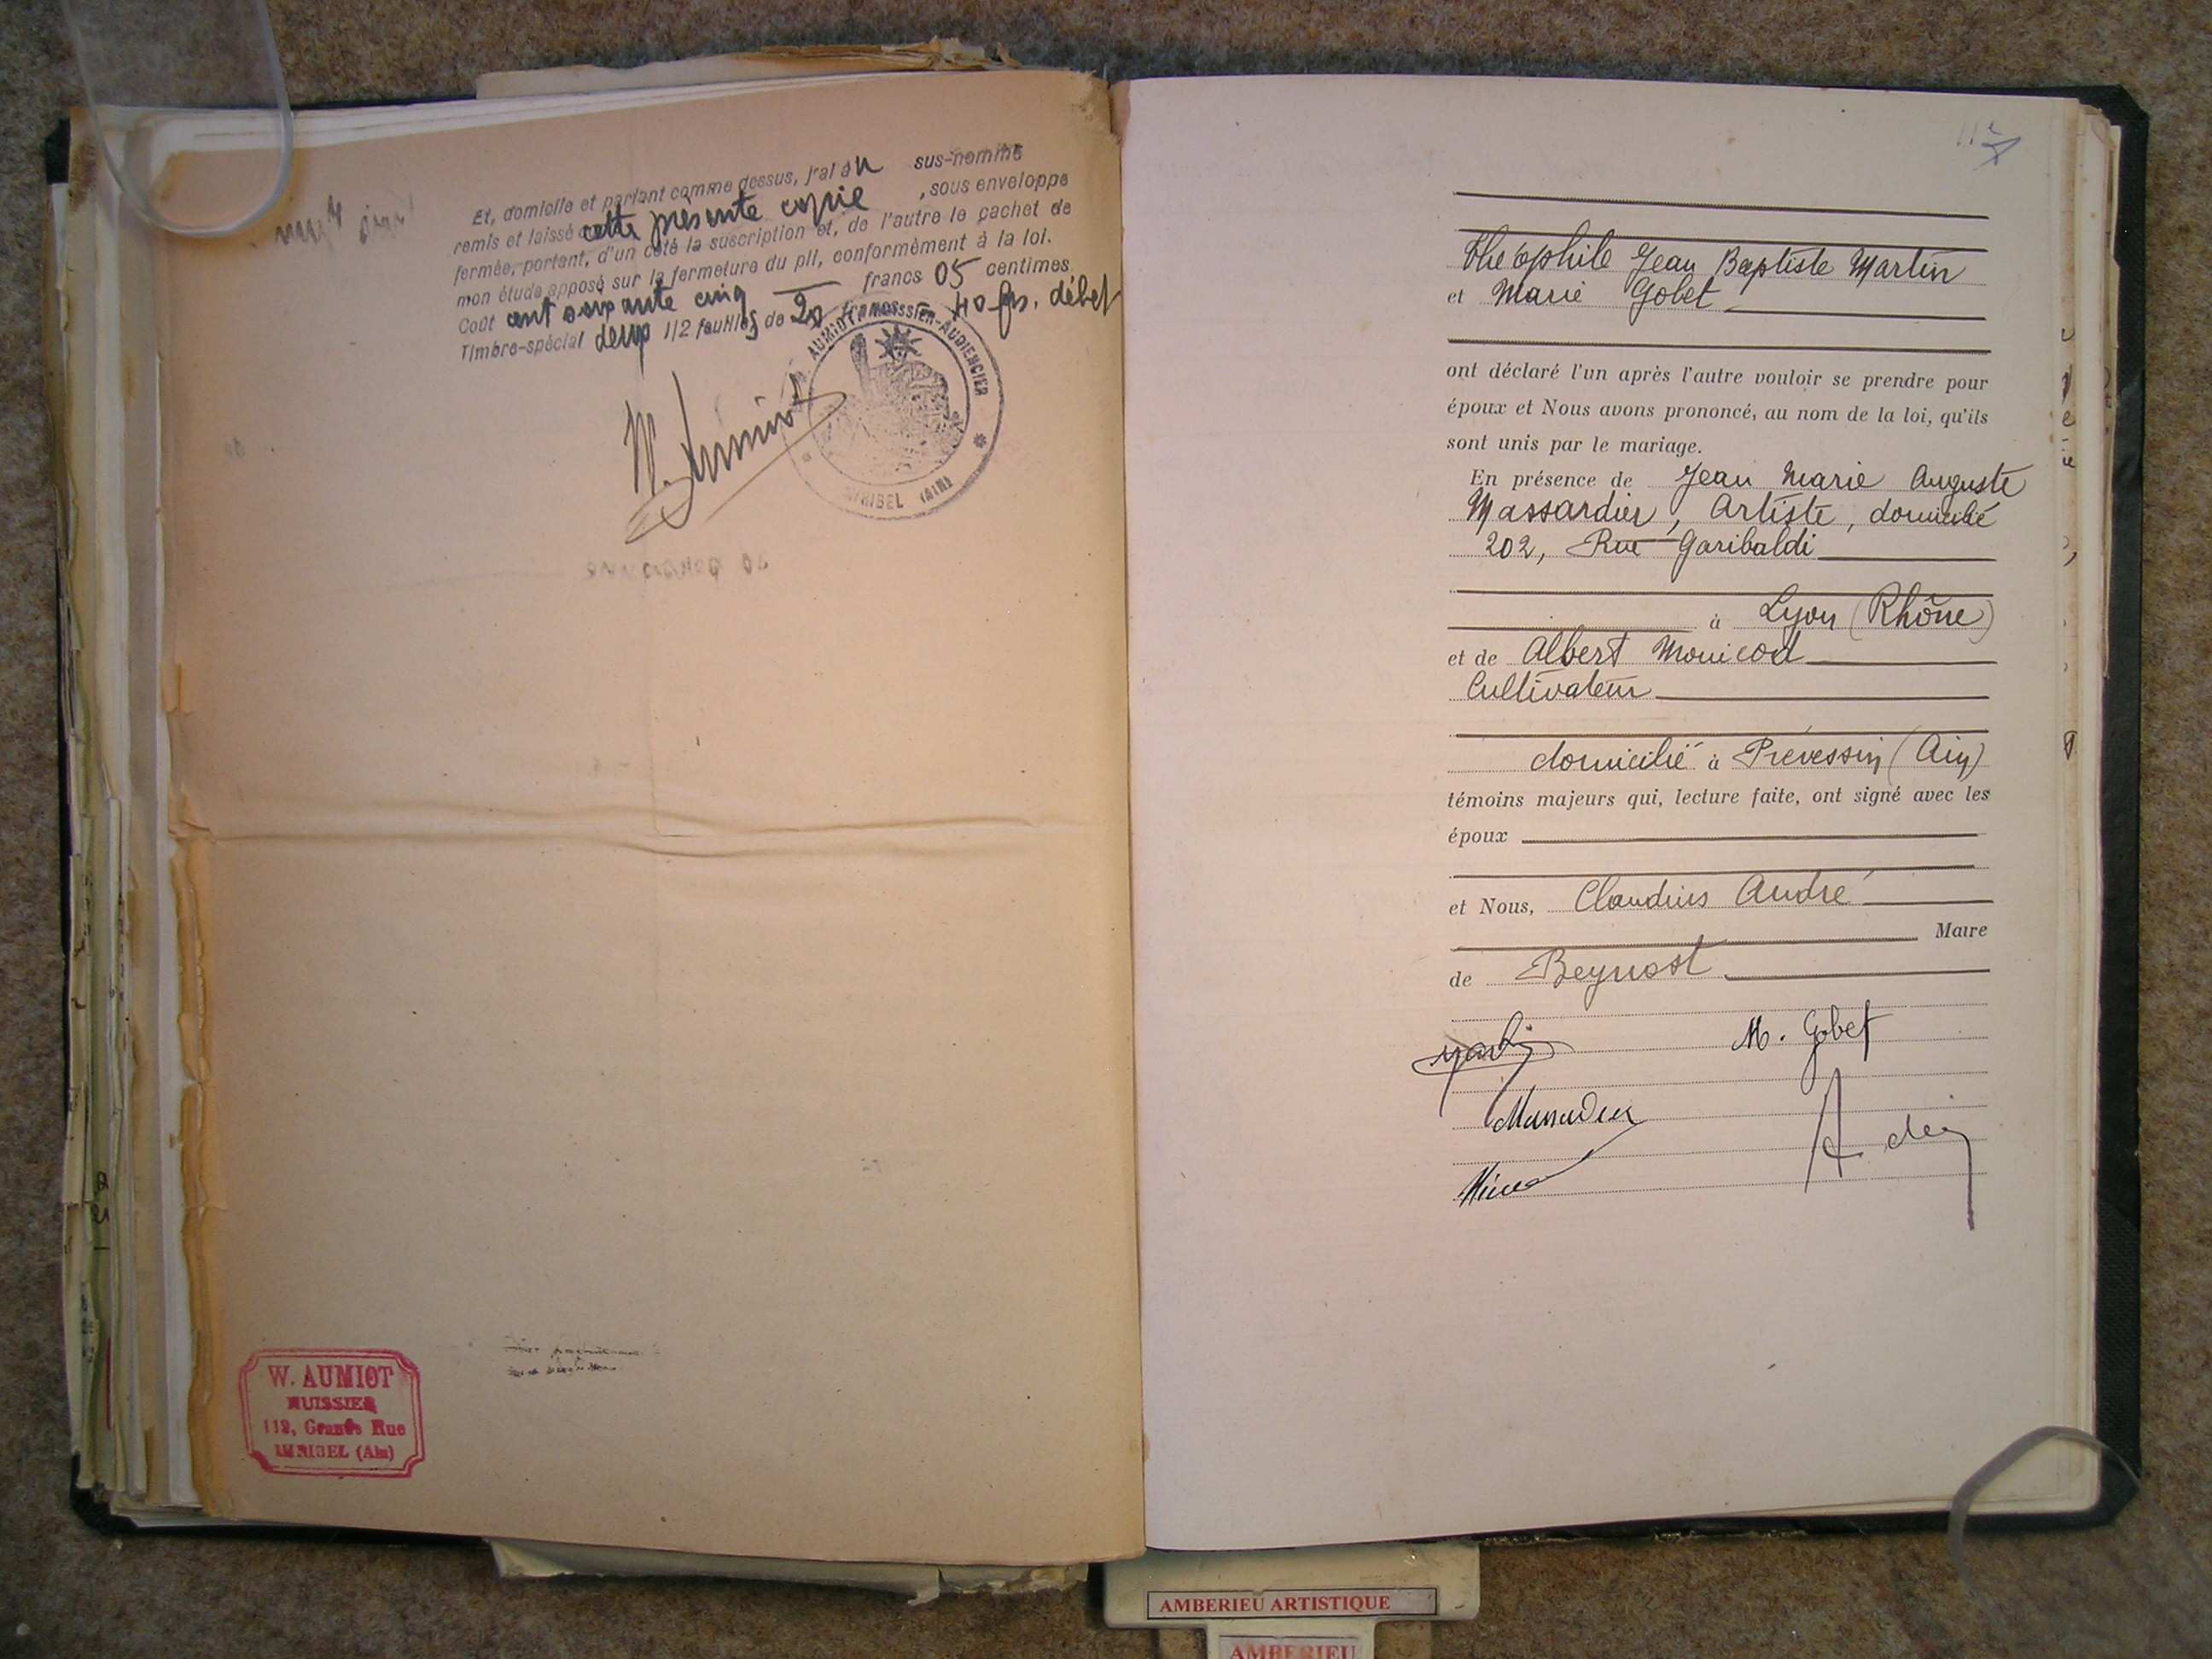 Et, domicile et parlant comme dessus, j'ai au sus-nommé
remis et laissé cette présente copie , sous enveloppe
fermée, portant, d'un coté la suscription et, de l'autre le cachet de
mon étude apposé sur la fermeture du pli, conformèment à la loi.
Coût cent soixante cinq francs 05 centimes
Timbre-spécial deux 1/2 feuilles de 20 francs 40 frs. débet
AUMIOT HUISSIER-AUDIENCIER
MIRIBEL (AIN)
W. Aumiot
W. AUMIOT
HUISSIER
112, Grande Rue
MIRIBEL (Ain)
Théophile Jean Baptiste Martin
et Marie Gobet
ont déclaré l'un après l'autre vouloir se prendre pour
époux et Nous avons prononcé, au nom de la loi, qu'ils
sont unis par le mariage.
En présence de Jean Marie Auguste
Massardier, Artiste, domicilié
202, Rue Garibaldi
à Lyon (Rhône)
et de Albert Monicod
Cultivateur
domicilié à Prévessin (Ain)
témoins majeurs qui, lecture faite, ont signé avec les
époux
et Nous, Claudius André
Maire
de Beynost
Martin M. Gobet
Massardier
AMBERIEU ARTISTIQUE
AMBERIEU